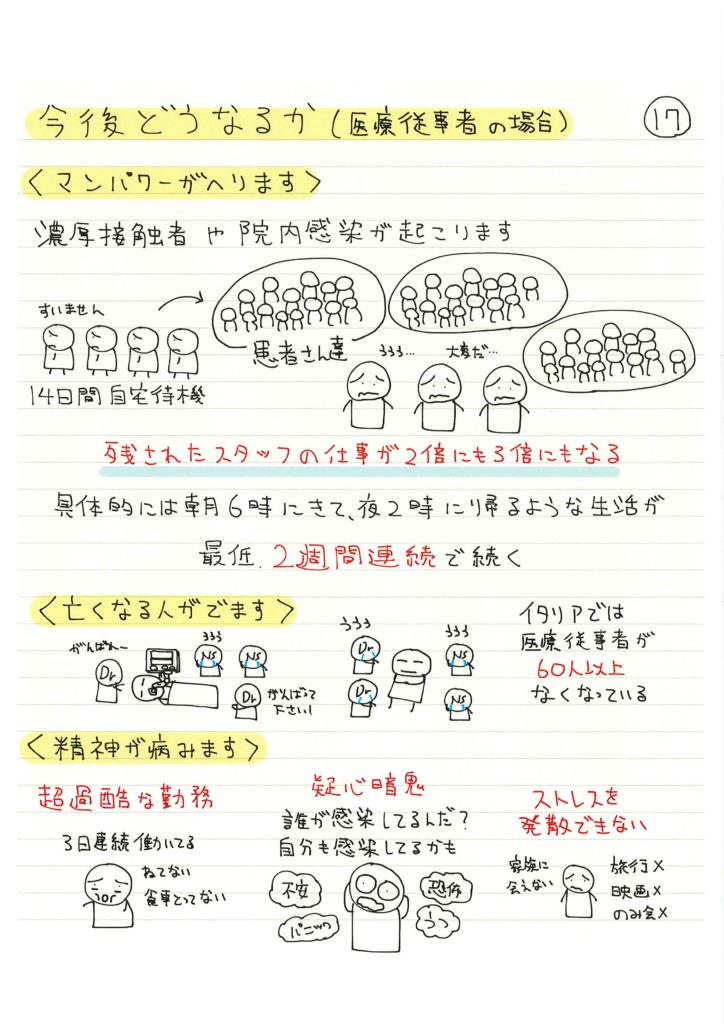 今後どうなるか(医療従事者の場合)
17
<マンパワーがへります>
濃厚接触者や院内感染が起こります
すいません
14日間自宅待機
患者さん達
うぅぅ…
大変だ…
残されたスタッフの仕事が2倍にも3倍にもなる
具体的には朝6時にきて、夜2時に帰るような生活が
最低.2週間連続で続く
<亡くなる人がでます>
がんばれー
Dr
うぅぅ
Ns
Ns
Dr
がんばって
下さい!
うぅぅ
Dr
Dr
うぅぅ
Ns
Ns
イタリアでは
医療従事者が
60人以上
なくなっている
<精神が病みます>
超過酷な勤務
3日連続働いてる
ねてない
食事とってない
疑心暗鬼
誰が感染してるんだ?
自分も感染してるかも
不安
パニック
恐怖
うつ
ストレスを
発散できない
家族に
会えない
旅行×
映画×
のみ会×